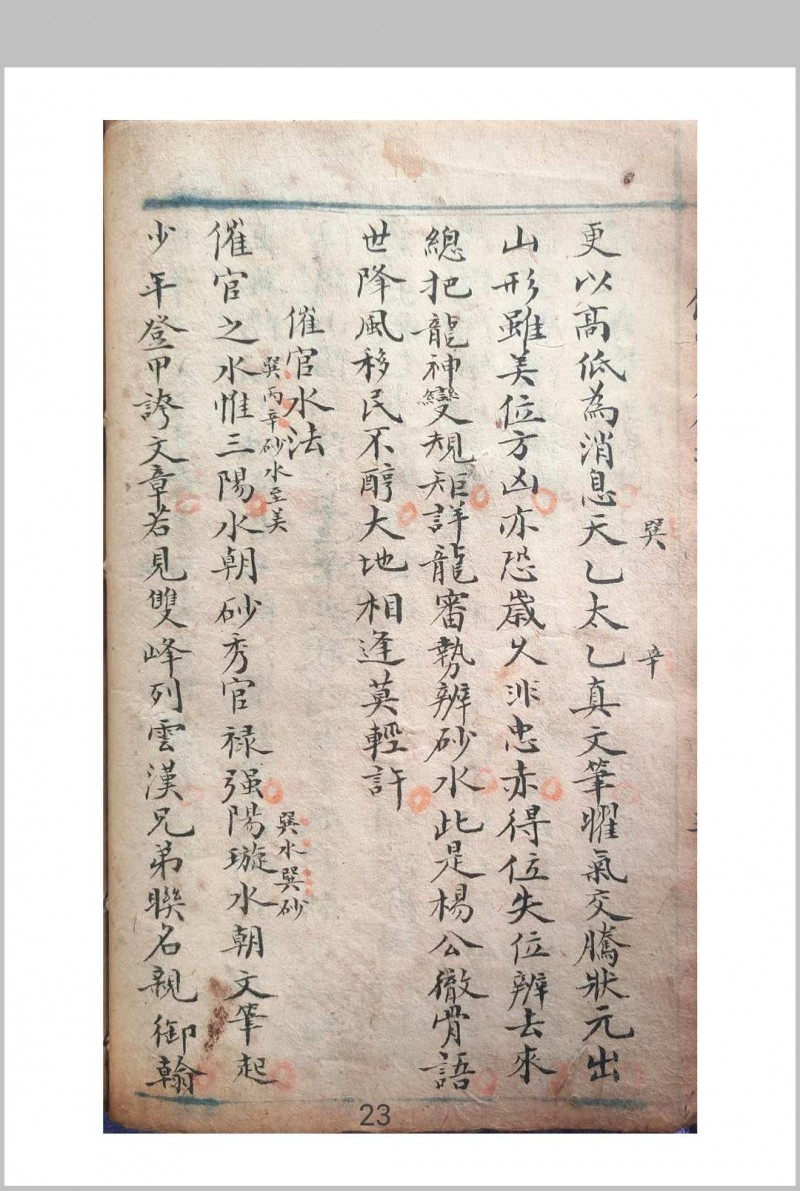 巽　辛
更以高低為消息天乙太乙真文筆曜氣交騰狀元出
山形雖美位方凶亦恐歲久非忠赤得位失位辨去來
總把龍神變規矩詳龍審勢辨砂水此是楊公徹骨語
世降風移民不醇大地相逢莫輕許
催官水法
巽丙辛砂水至美
巽水巽砂
催官之水惟三陽水朝砂秀官禄强陽璇水朝文筆起
少年登甲誇文章若見雙峰列雲漢兄弟聯名親御翰
23